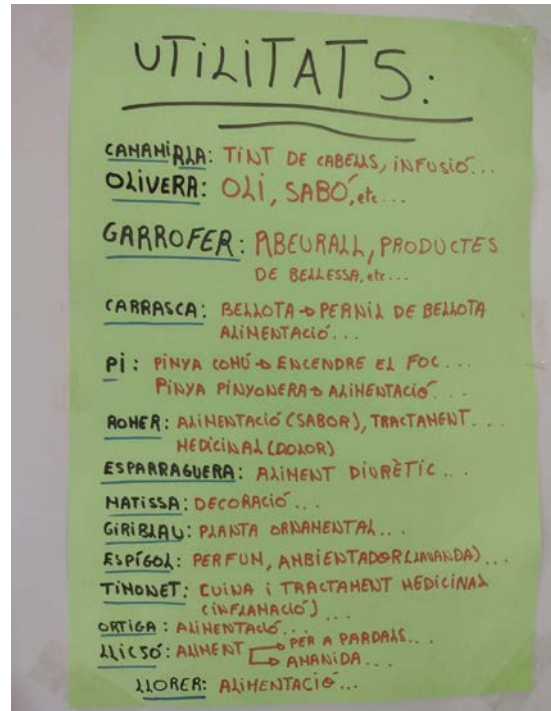 UTILITATS:
CAMAMIRLA: TINT DE CABELLS, INFUSIÓ...
OLIVERA: OLI, SABÓ, etc...
GARROFER: ABEURALL, PRODUCTES
DE BELLESSA, etc...
CARRASCA: BELLOTA → PERNIL DE BELLOTA
ALIMENTACIÓ...
PI: PINYA COMÚ → ENCENDRE EL FOC...
PINYA PINYONERA → ALIMENTACIÓ...
ROMER: ALIMENTACIÓ (SABOR), TRACTAMENT...
MEDICINAL (DOLOR)
ESPARRAGUERA: ALIMENT DIURÈTIC...
MATISSA: DECORACIÓ...
GIRIBLAU: PLANTA ORNAMENTAL...
ESPÍGOL: PERFUM, AMBIENTADOR (LAVANDA)...
TIMONET: CUINA I TRACTAMENT MEDICINAL
(INFLAMACIÓ)
ORTIGA: ALIMENTACIÓ...
LLICSÓ: ALIMENT → PER A PARDALS...
→ AMANIDA...
LLORER: ALIMENTACIÓ...